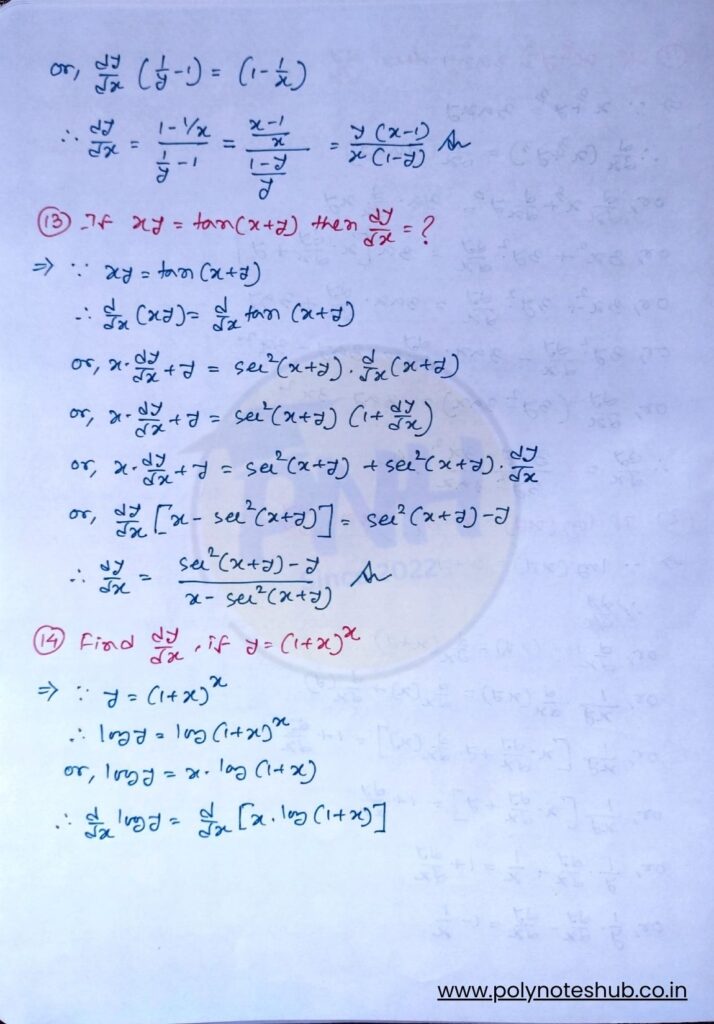 or, dy/dx (1/y - 1) = (1 - 1/x)
∴ dy/dx = (1 - 1/x)/(1/y - 1) = ((x-1)/x)/((1-y)/y) = y(x-1)/x(1-y) An
(13) If xy = tan(x+y) then dy/dx = ?
⇒ ∵ xy = tan(x+y)
∴ d/dx (xy) = d/dx tan(x+y)
or, x·dy/dx + y = sec²(x+y)·d/dx(x+y)
or, x·dy/dx + y = sec²(x+y) (1 + dy/dx)
or, x·dy/dx + y = sec²(x+y) + sec²(x+y)·dy/dx
or, dy/dx [x - sec²(x+y)] = sec²(x+y) - y
∴ dy/dx = (sec²(x+y) - y)/(x - sec²(x+y)) An
(14) Find dy/dx, if y = (1+x)^x
⇒ ∵ y = (1+x)^x
∴ log y = log (1+x)^x
or, log y = x·log (1+x)
∴ d/dx log y = d/dx [x·log (1+x)]
PNH
Since 2022
www.polynoteshub.co.in